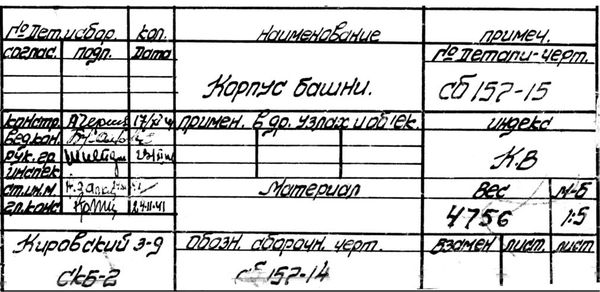 №Дет.исбор. кол. наименование примеч.
соглас. подп. Дата № Детали-черт.
Корпус башни. сб 157-15
констр. 17/XI 41 примен. в др. узлах и об'ек. индекс
вед.кон.
рук. гр.
инспек. КВ
ст.инж. Материал Вес М-б
гл.конс. 24-11-41 4756 1:5
Кировский з-д Обозн. сборочн. черт. Взамен лист. лист
СКБ-2 сб 157-14